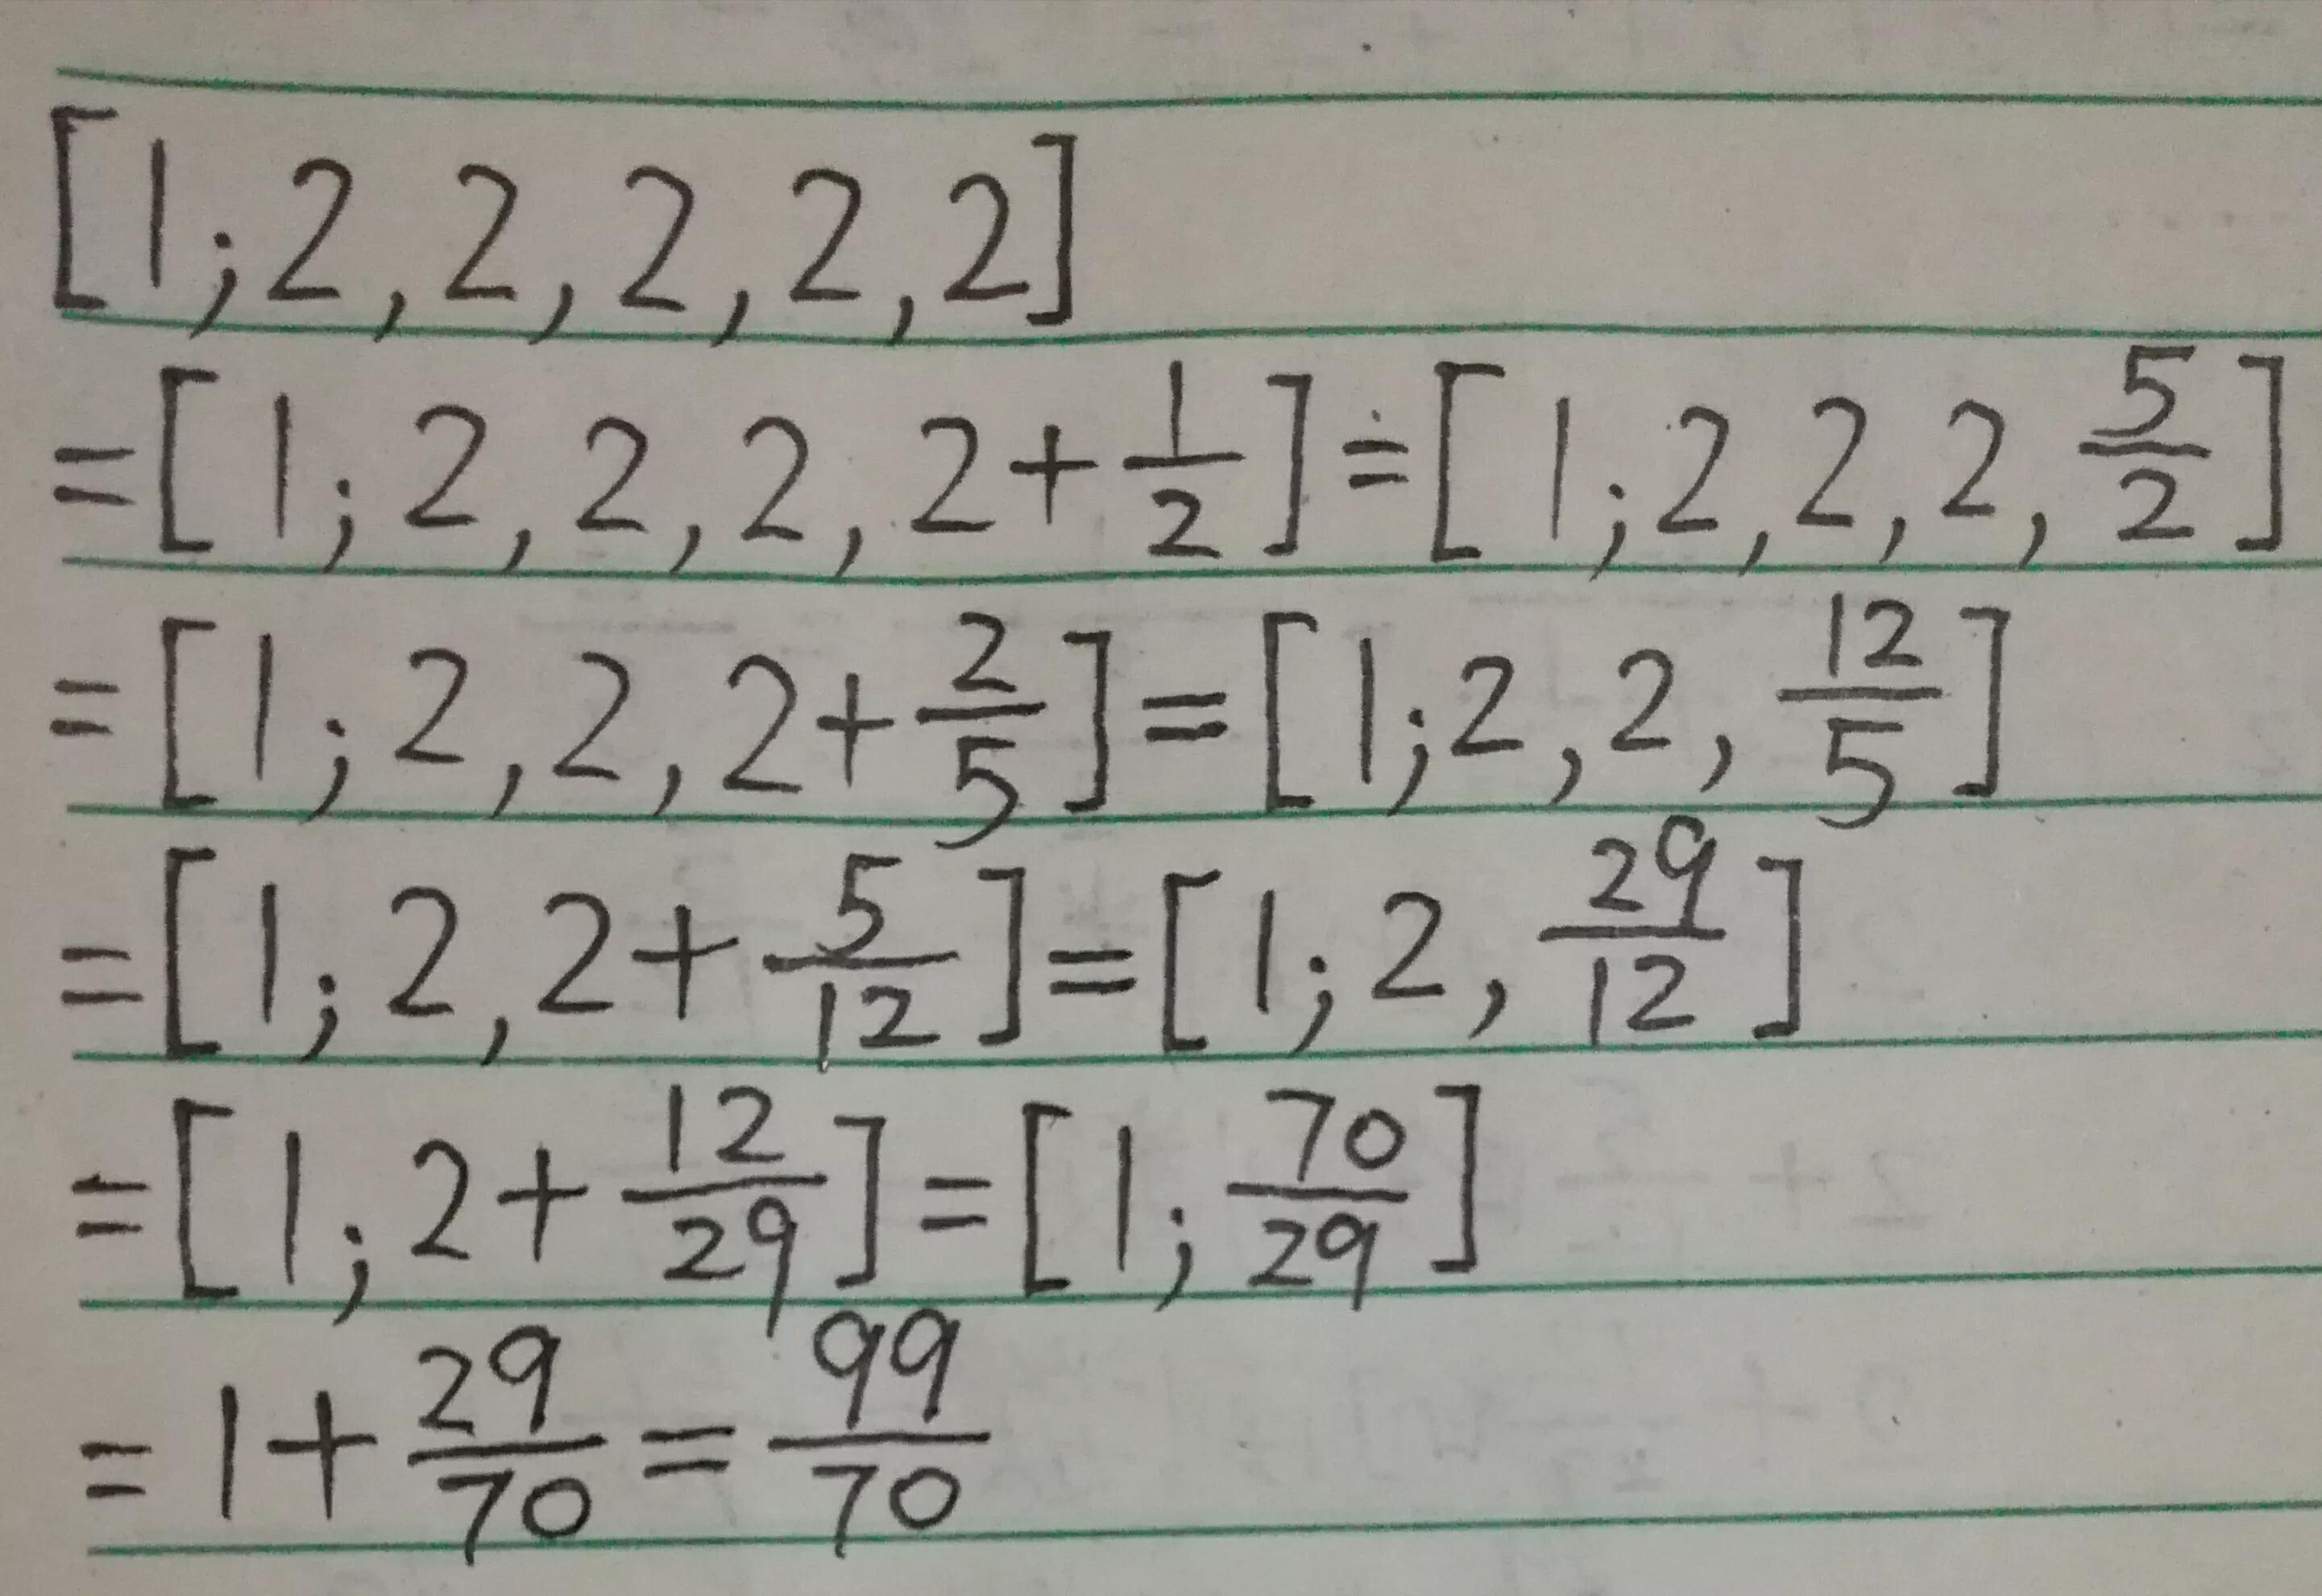 [1;2,2,2,2,2]
=[1;2,2,2,2+1/2]=[1;2,2,2,5/2]
=[1;2,2,2+2/5]=[1;2,2,12/5]
=[1;2,2+5/12]=[1;2,29/12]
=[1;2+12/29]=[1;70/29]
=1+29/70=99/70